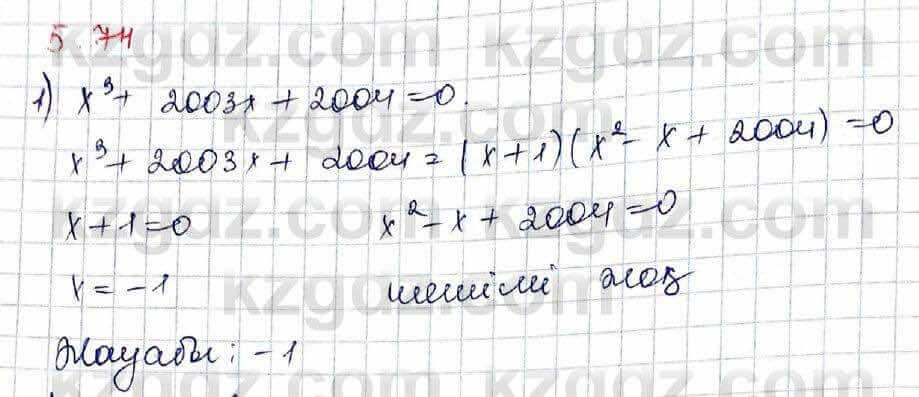 5.74
1) x³ + 2003x + 2004 = 0.
x³ + 2003x + 2004 = (x+1)(x² - x + 2004) = 0
x + 1 = 0 x² - x + 2004 = 0
x = -1 шешімі жоқ
Жауабы: -1
kzgdz.com